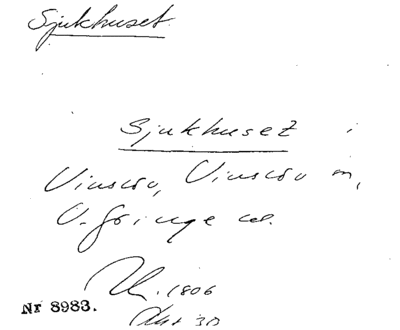 Sjukhuset
Sjukhuset i
Vinslöv, Vinslöv sn,
V. Göinge hd.
1806
Nr 8983.